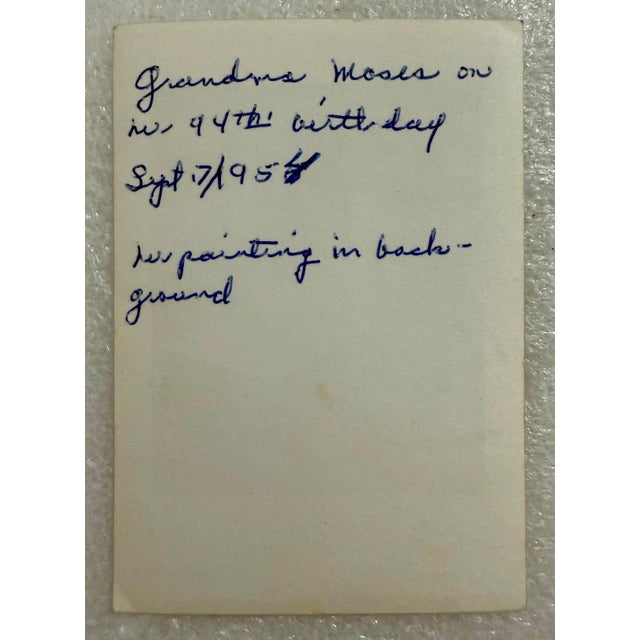 Grandma Moses on
her 94th birthday
Sept. 7/1954
her painting in back-
ground